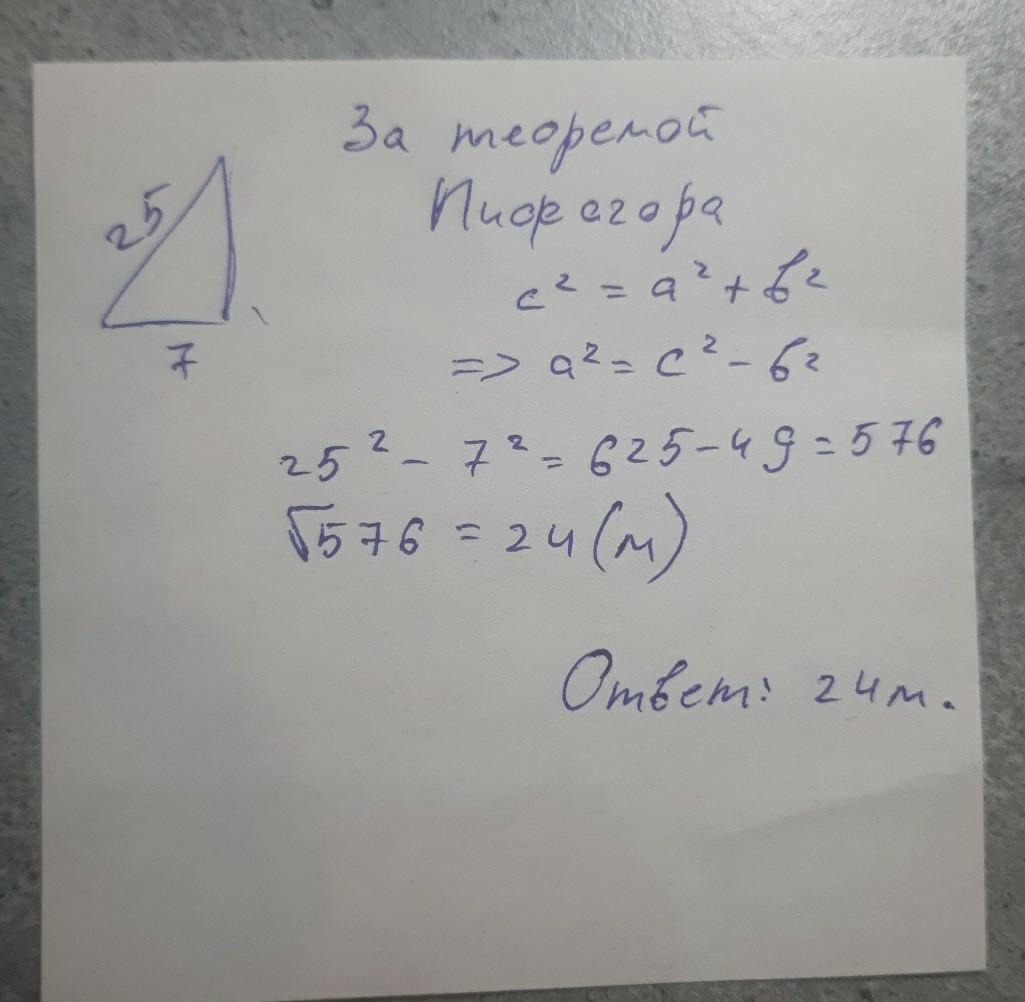 За теоремой
Пифагора
25
7
c² = a² + b²
=> a² = c² - b²
25² - 7² = 625 - 49 = 576
√576 = 24 (м)
Ответ: 24 м.